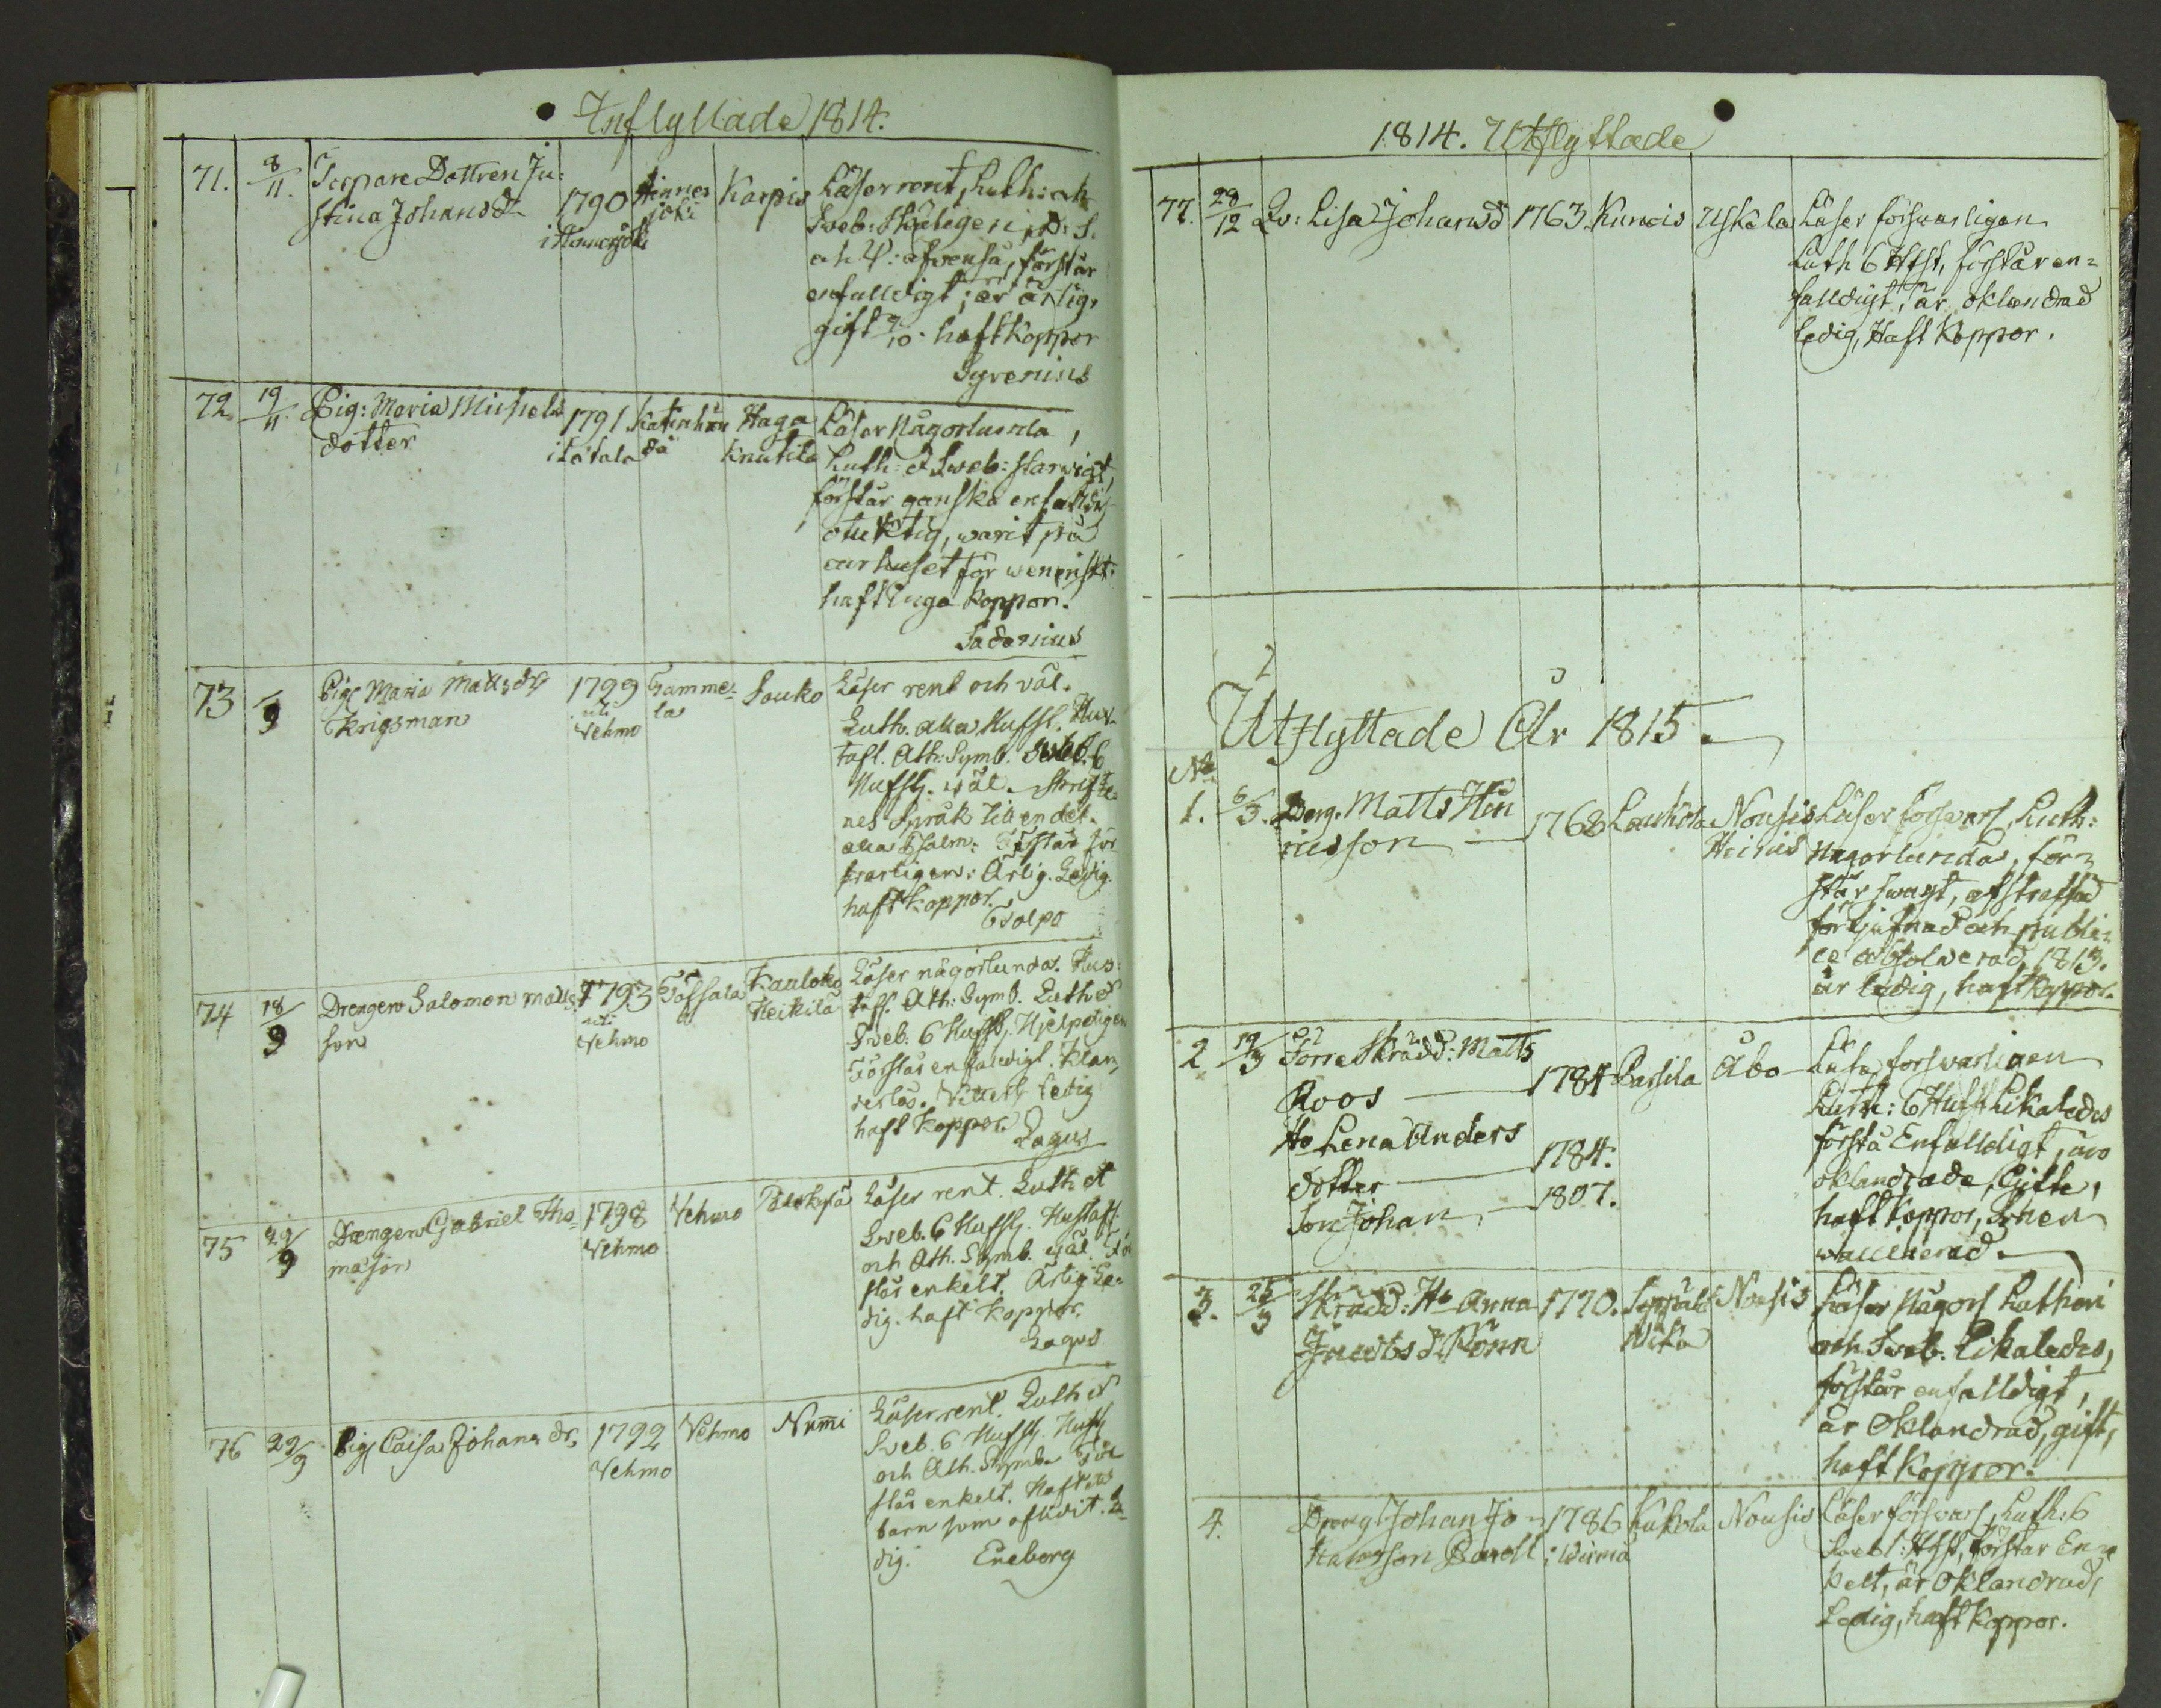 Inflyttade 1814.
71. 8/11. Torpare Dottren Ju:
stina Johansd 1790 Hinner joki Karpis
i Hinnerjoki
Läser rent, Luth: och
Sveb: Skäligen,
och afvenså, förstår
enfalldigt; är ärlig,
gift 9/10. haft koppor
Gyrenius
72. 19/11. Pig: Maria Michels
dotter 1791 Haga
Knutila
Läser någorlunda,
Luth: & Sveb:
förstår ganska enfalldigt
otucktig, warit på
curhuset för weneriskt.
haft inga koppor.
73 9 Pig Maria Matts dr
Krigsman 1799 uti Vehmo Gamme-
la Louko
Läser rent och väl.
Luth. alla Hufst. Hus-
tafl. Ath: Symb. Sveb. 6
Hufst. väl. Skrifte-
nes språk till en del.
alla Psalm: Förstår för
svarligen: Ärlig. Ledig.
haft koppor.
Polpo
74 18/9 Drengen Salomon Matts-
son 1793 uti Vehmo Taffala
Heikilä
Läser någorlunda. Hus-
tafl. Ath: Symb. Luth &
Sveb: 6 Hufst. Hjelpeligen
Förstår enfaldigt. Klan-
derlös. Ledig
haft koppor.
Lagus
75 29/9 Drengen Gabriel Tho-
masson 1798 Vehmo Vehmo
Läser rent. Luth et
Sveb. 6 Hufst. Hustafl
och Ath. Symb. väl. För
står enkelt. Ärlig. Le-
dig. haft koppor.
Lagus
76 29/9 Pig Caisa Johans dr, 1792 Vehmo Vehmo Num̄i
Läser rent. Luth &
Sveb. 6 Hufst.
och Ath. Symb. För
står enkelt. Haft
barn som aflidit. Le-
dig. Eneborg
1814. Utflyttade
77. 28/12 Qv: Lisa Johansd 1763. Kuncis Uskela
Läser försvarligen
Luth 6 Hfst, förstår en=
falldigt, är oklandrad
ledig, Haft Koppor.
Utflyttade År 1815.
No
1. 6/3. Dreng. Matts Hin
ricsson 1768 Laukola Nousis
Läser försvarl, Luth:
någorlunda, för=
står svagt, afstraffad
för tjufnad och publi=
ce absolverad 1813.
är ledig, haft koppor.
2 19/3 Sorre Skrädd: Matts
Roos 1784 Parsila Åbo
Ho Lena Anders
dotter 1784.
Son Johan 1807.
Läsa försvarligen
Luth: 6 Hufst likaledes
förstå Enfalldigt, äro
oklandrade, Gifte,
haft koppor, Sonen
waccinerad.
3. 25/3 Skrädd: Ho Anna 1770. Nousis
Läser någorl Lutheri
och Sveb: likaledes,
förstår enfalldigt,
är Oklandrad, gift,
haft koppor.
4. Dreng Johan Jo= 1786 Kukola Nousis
hansson i Wirmo
Läser försvarl, Luth: 6
Svebl: Hfst, förstår En=
kelt, är Oklandrad,
Ledig, haft koppor.